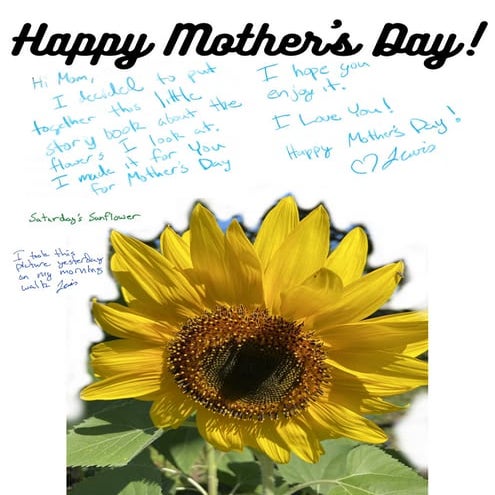 Happy Mother's Day!
Hi Mom,
I decided to put
together this little
story book about the
flowers I look at.
I made it for You
for Mother's Day
I hope you
enjoy it.
I Love You!
Happy Mother's Day!
♡ Lewis
Saturday's Sunflower
I took this
picture yesterday
on my morning
walk